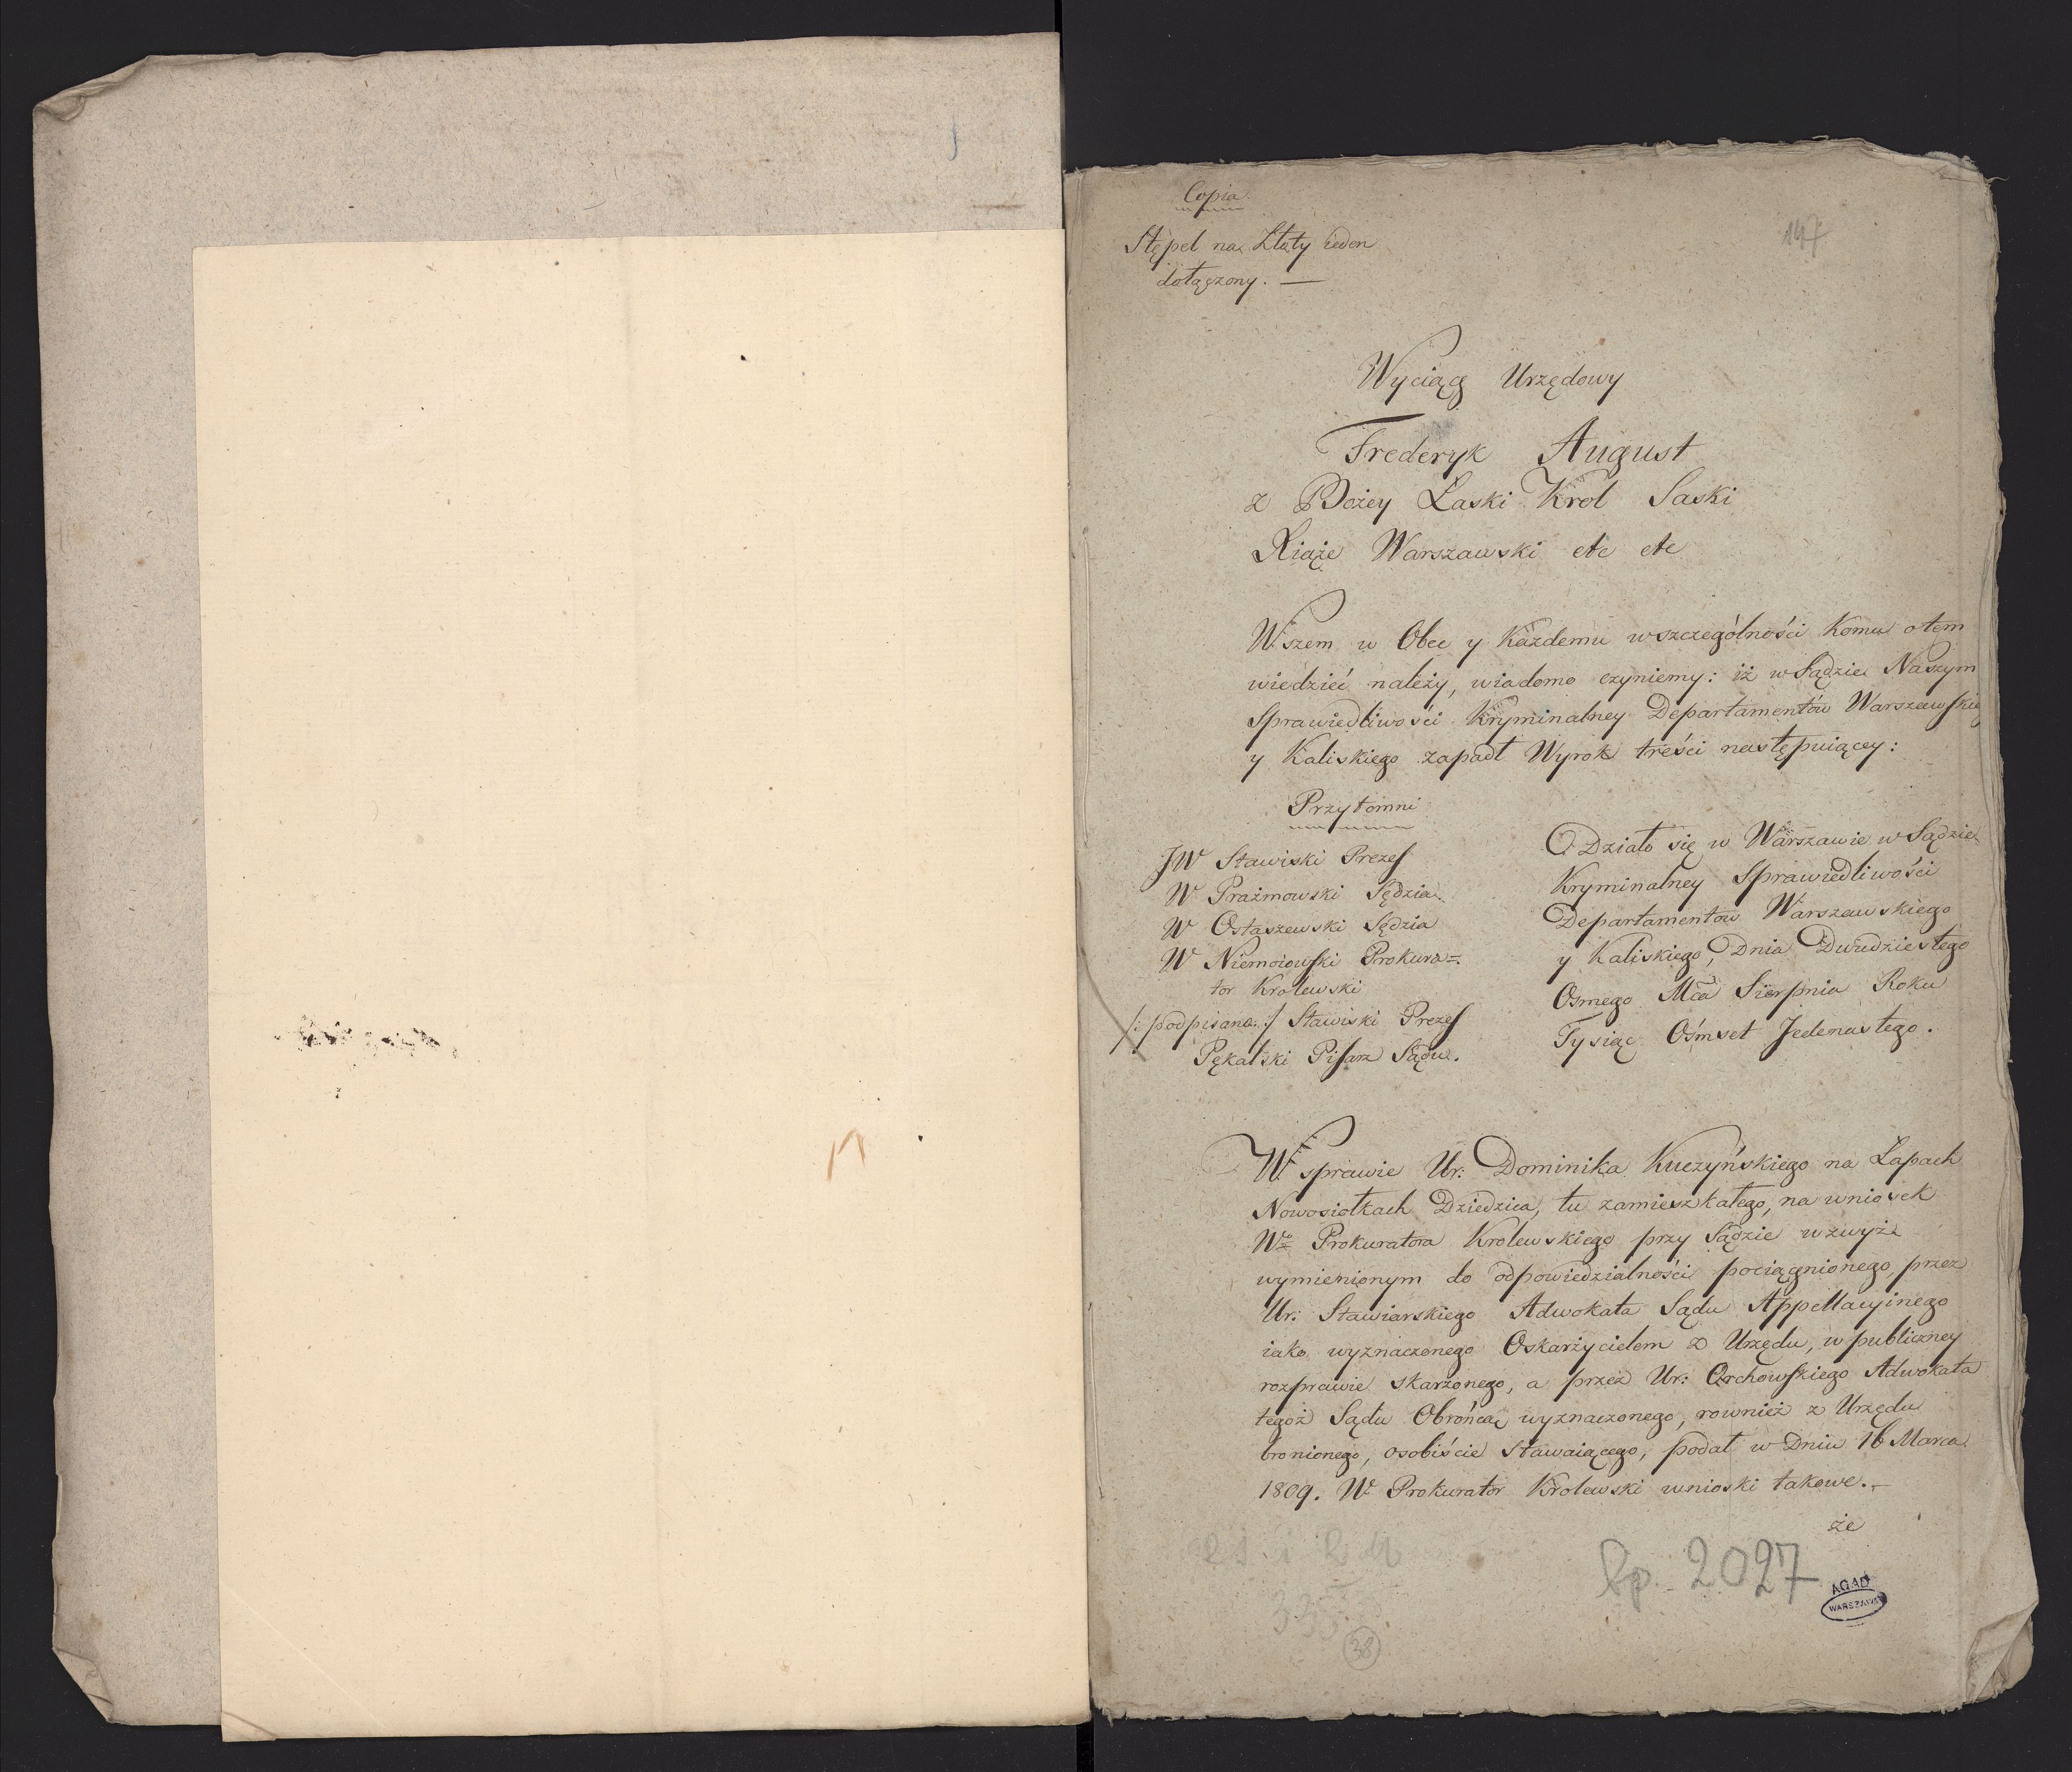 Copia
Stępel na Złoty ieden
dołączony. —
147
Wyciąg Urzędowy
Frederyk August
z Bożey Łaski Krol Saski
Xiąże Warszawski etc etc
Wszem w Obec y Każdemu wszczególności Komu otem
wiedzieć należy, wiadomo czyniemy: iż w Sądzie Naszym
Sprawiedliwości Kryminalney Departamentów Warszawskie
y Kaliskiego zapadł Wyrok treści następuiącey:
Przytomni
JW Stawiski Prezes
W Prażmowski Sędzia
W Ostaszewski Sędzia
W Niemoiowski Prokura=
tor Krolewski
/: podpisano :/ Stawiski Prezes
Pękalski Pisarz Sądu.
Działo się w Warszawie w Sądzie
Kryminalney Sprawiedliwości
Departamentow Warszawskiego
y Kaliskiego, Dnia Dwudziestego
Osmego Mca Sierpnia Roku
Tysiąc Ośmset Jedenastego.
W sprawie Ur: Dominika Kuczyńskiego na Łapach
Nowosiołkach Dziedzica, tu zamieszkałego, na wniosek
Wo Prokuratora Krolewskiego przy Sądzie wzwyż
wymienionym do odpowiedzialności pociągnionego, przez
Ur: Stawiarskiego Adwokata Sądu Appellacyinego
iako wyznaczonego Oskarżycielem z Urzędu, w publiczney
rozprawie skarżonego, a przez Ur: Orchowskiego Adwokata
tegoż Sądu Obrońcą wyznaczonego, rownież z Urzędu
bronionego, osobiście stawaiącego, podał w Dniu 16 Marca
1809. W. Prokurator Krolewski wnioski takowe. —
że
Sp. 2027
AGAD
WARSZAWA
335
38